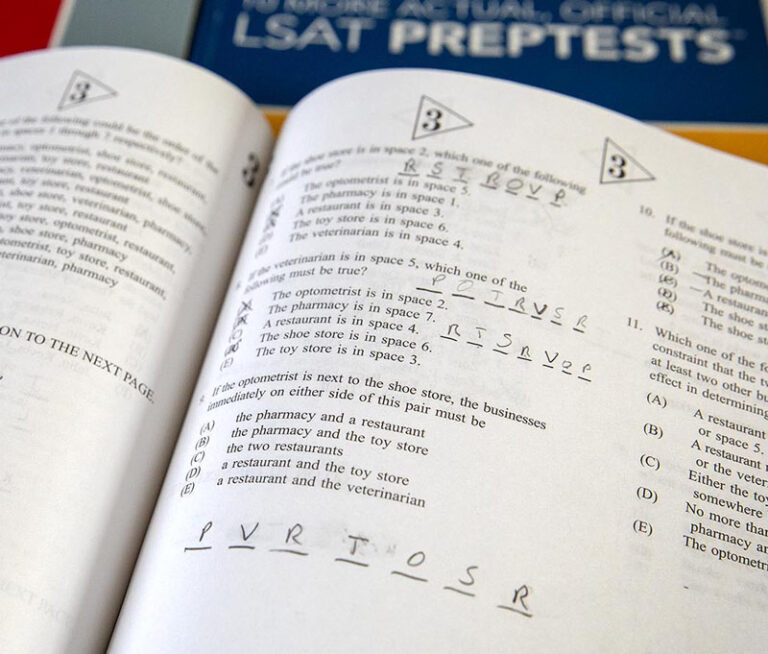 10 MORE ACTUAL, OFFICIAL
LSAT PREPTESTS
3
of the following could be the order of
spaces 1 through 7 respectively?
optometrist, shoe store, restaurant,
toy store, restaurant
veterinarian, optometrist, shoe store,
toy store, restaurant
shoe store, veterinarian, pharmacy,
toy store, restaurant
toy store, optometrist, restaurant,
shoe store, pharmacy
optometrist, toy store, restaurant,
veterinarian, pharmacy
ON TO THE NEXT PAGE.
3
3
the shoe store is in space 2, which one of the following
could be true?
R S T R O V P
The optometrist is in space 5.
The pharmacy is in space 1.
A restaurant is in space 3.
The toy store is in space 6.
(E) The veterinarian is in space 4.
If the veterinarian is in space 5, which one of the
following must be true?
P O T R V S R
The optometrist is in space 2.
The pharmacy is in space 7.
(C) A restaurant is in space 4.
The shoe store is in space 6.
(E) The toy store is in space 3.
R T S R V O P
If the optometrist is next to the shoe store, the businesses
immediately on either side of this pair must be
(A) the pharmacy and a restaurant
(B) the pharmacy and the toy store
(C) the two restaurants
(D) a restaurant and the toy store
(E) a restaurant and the veterinarian
P V R T O S R
3
10. If the shoe store is
following must be
(A) The optom
(B) The pharm
A restauran
(D) The shoe st
(E) The shoe st
11. Which one of the fo
constraint that the tw
at least two other bu
effect in determining
(A) A restaurant
or space 5.
(B) A restaurant
or the veter
(C) Either the toy
somewhere
(D) No more than
pharmacy an
(E) The optometr